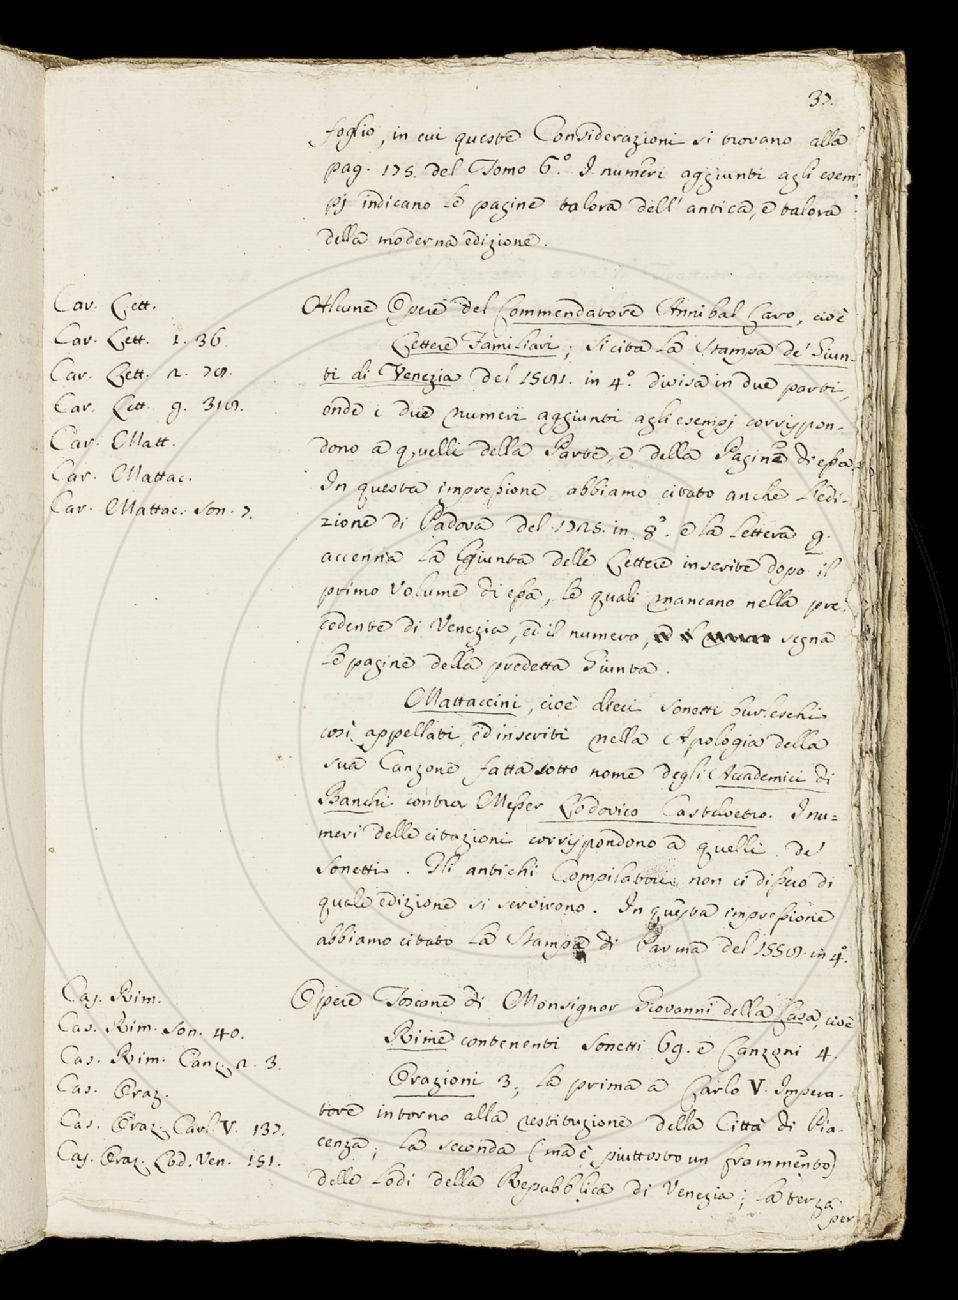 37.
foglio, in cui queste Considerazioni si trovano alla
pag. 175. del Tomo 6.º I numeri aggiunti agli esem-
pj indicano le pagine talora dell' antica, e talora
della moderna edizione.
Car. Lett.
Car. Lett. 1. 36.
Car. Lett. 2.
Car. Lett. 9.
Car. Matt.
Car. Mattac.
Car. Mattac. Son. 7.
Alcune Opere del Commendatore Annibal Caro, cioè
Lettere Familiari; si cita la Stampa de' Giun-
ti di Venezia del 1581. in 4.º divisa in due parti,
onde i due numeri aggiunti agli esempj corrispon-
dono a quelli della Parte, e della Pagina di essa.
In questa impressione abbiamo citato anche l'edi-
zione di Padova del 1725. in 8.º e la lettera g.
accenna la Giunta delle Lettere inserite dopo il
primo Volume di essa, le quali mancano nella pre-
cedente di Venezia, ed il numero, segna
le pagine della predetta Giunta.
Mattaccini, cioè dieci Sonetti burleschi
così appellati, ed inseriti nella Apologia della
sua Canzone fatta sotto nome degli Accademici di
Banchi contra Messer Lodovico Castelvetro. I nu=
meri delle citazioni corrispondono a quelli de'
Sonetti. Gli antichi Compilatori non ci dissero di
quale edizione si servirono. In questa impressione
abbiamo citato la Stampa di Parma del 1558. in 4.º
Cas. Rim.
Cas. Rim. Son. 40.
Cas. Rim. Canz. 2. 3.
Cas. Oraz.
Cas. Oraz. Carl. V. 137.
Cas. Oraz. Lod. Ven. 151.
Opere Toscane di Monsignor Giovanni della Casa, cioè
Rime contenenti Sonetti 69. e Canzoni 4.
Orazioni 3; la prima a Carlo V. Impera-
tore intorno alla restituzione della Città di Pia-
cenza; la seconda (ma è piuttosto un frammento)
delle Lodi della Repubblica di Venezia; la terza
per